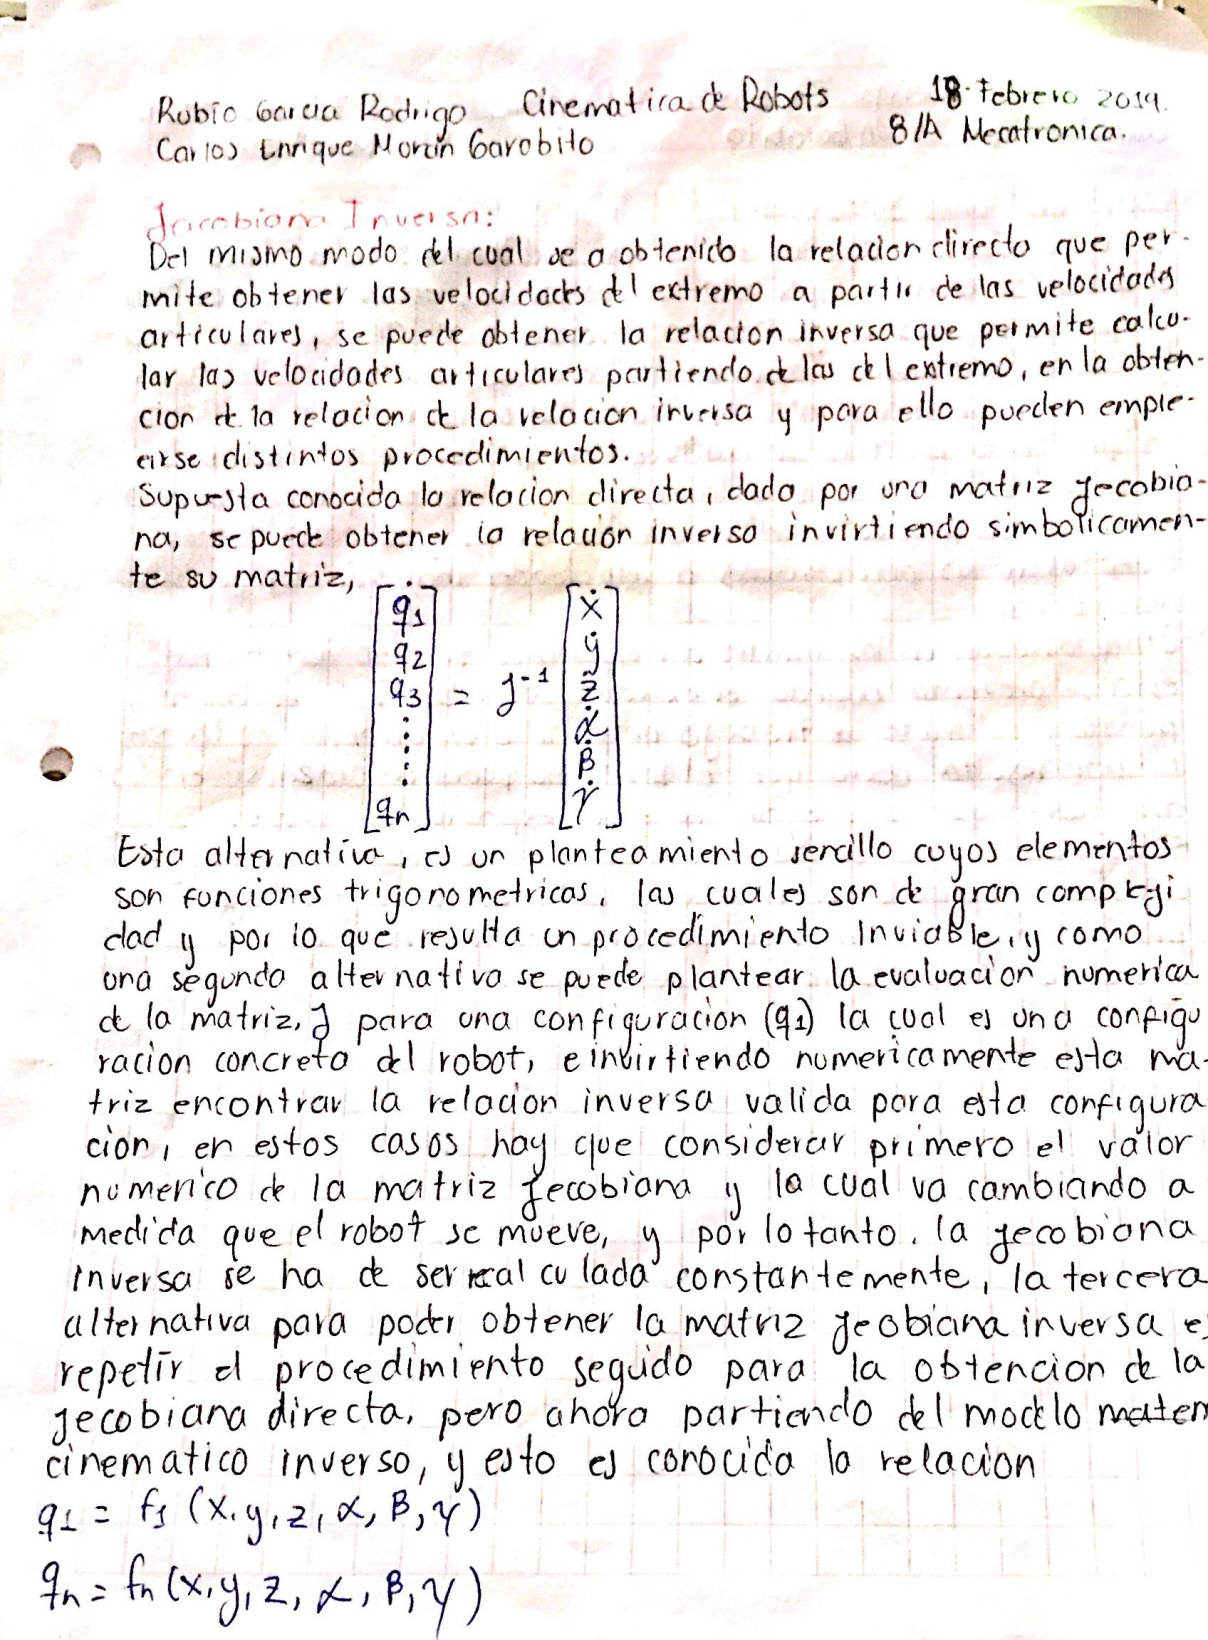 Rubio Garcia Rodrigo Cinematica de Robots 18-Febrero 2019.
Carlos Enrique Morcin Garabito 8/A Mecatronica.
Jacobiana Inversa:
Del mismo modo del cual se a obtenido la relacion directa que per-
mite obtener las velocidades del extremo a partir de las velocidades
articulares, se puede obtener la relacion inversa que permite calcu-
lar las velocidades articulares partiendo de las del extremo, en la obten-
cion de la relacion de la relacion inversa y para ello pueden emple-
arse distintos procedimientos.
Supuesta conocida la relacion directa, dada por una matriz jecobia-
na, se puede obtener la relación inversa invirtiendo simbolicamen-
te su matriz,
[q̇1 q2 q3 ⋮ qn] = J⁻¹ [ẋ ẏ ż α̇ β̇ γ̇]
Esta alternativa, es un planteamiento sencillo cuyos elementos
son funciones trigonometricas, las cuales son de gran compleji
dad y por lo que resulta un procedimiento inviable, y como
una segunda alternativa se puede plantear la evaluacion numerica
de la matriz, J para una configuracion (q1) la cual es una configu
racion concreta del robot, e invirtiendo numericamente esta ma-
triz encontrar la relacion inversa valida para esta configura
cion, en estos casos hay que considerar primero el valor
numerico de la matriz jecobiana y la cual va cambiando a
medida que el robot se mueve, y por lo tanto, la jecobiana
inversa se ha de ser recalculada constantemente, la tercera
alternativa para poder obtener la matriz jeobiana inversa es
repetir el procedimiento seguido para la obtencion de la
jecobiana directa, pero ahora partiendo del modelo
cinematico inverso, y esto es conocida la relacion
q1 = f1 (x, y, z, α, β, γ)
qn = fn (x, y, z, α, β, γ)